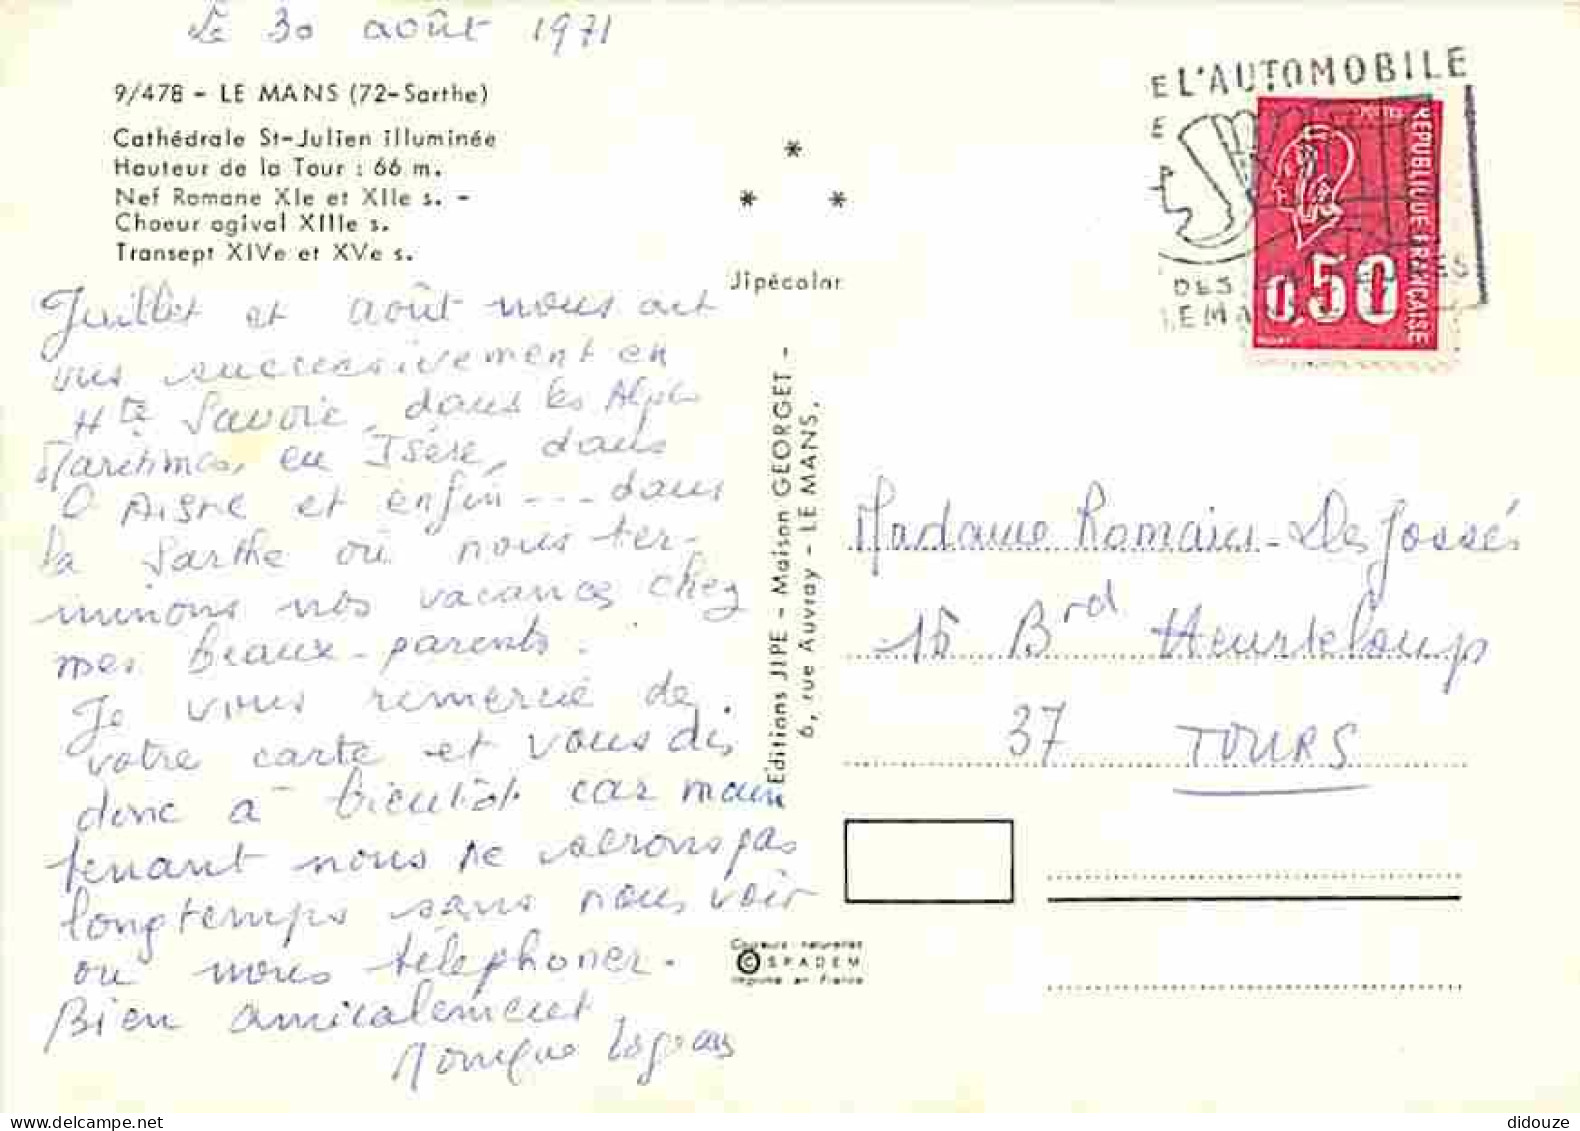 Le 30 août 1971
9/478 - LE MANS (72-Sarthe)
Cathédrale St-Julien illuminée
Hauteur de la Tour : 66 m.
Nef Romane XIe et XIIe s. -
Choeur ogival XIIIe s.
Transept XIVe et XVe s.
Juillet et août nous ont
vus successivement en
Hte Savoie, dans les Alpes
Maritimes, en Isère, dans
l'Aisne et enfin --- dans
la Sarthe où nous ter-
minons nos vacances chez
mes beaux-parents.
Je vous remercie de
votre carte et vous dis
donc à bientôt car main
tenant nous ne serons pas
longtemps sans nous voir
ou nous téléphoner.
Bien amicalement
Monique
* * *
Jipécolor
Editions JIPE - Maison GEORGET -
6, rue Auvray - LE MANS.
Couleurs naturelles
© SPADEM
Imprimé en France
E L'AUTOMOBILE
E
DES
LE MA
POSTES
REPUBLIQUE FRANÇAISE
0,50
Madame Romain-Desfossés
15 Brd Heurteloup
37 TOURS
didouze